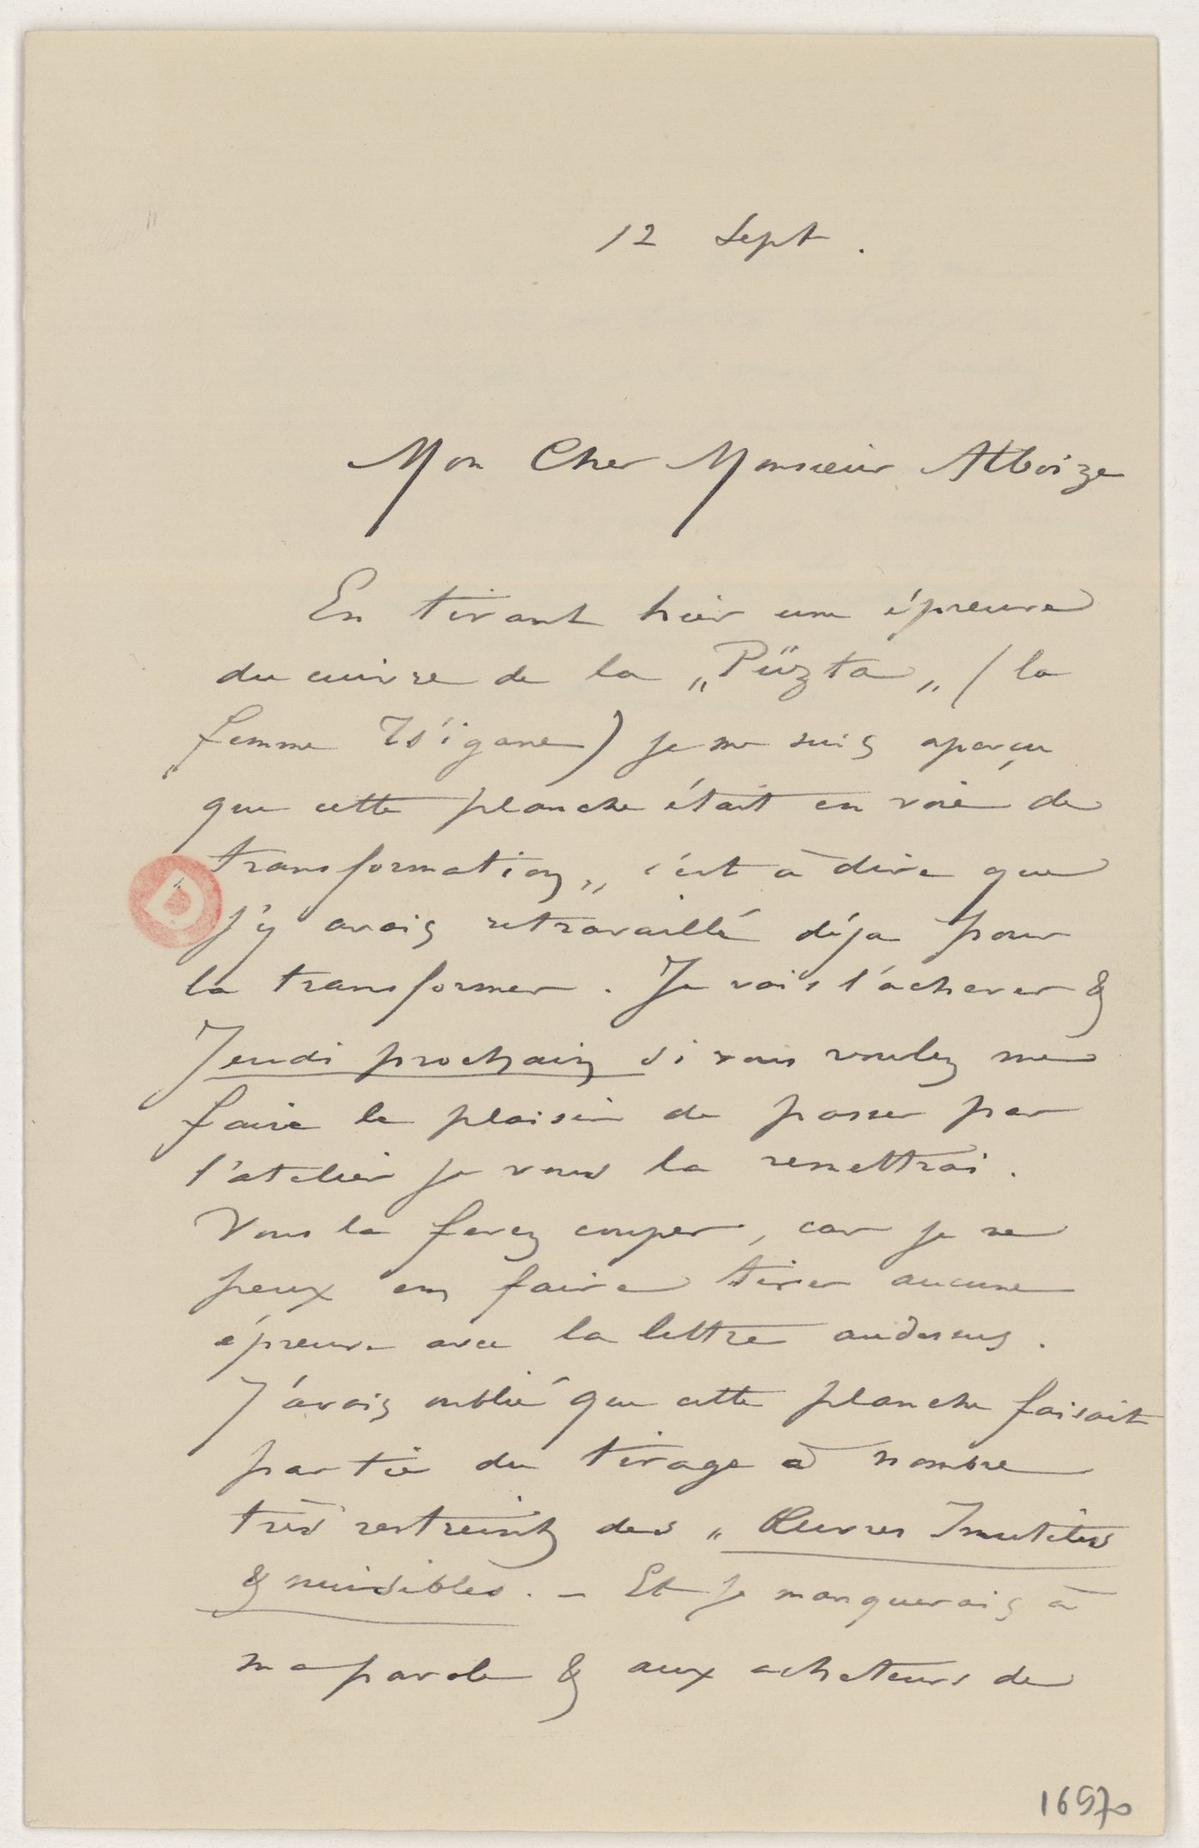 12 Sept.
Mon Cher Monsieur Alboize
En tirant hier une épreuve
du cuivre de la „Püzta„ (la
femme Tsigane) je me suis aperçu
que cette planche était en voie de
transformation„ c'est à dire que
j'y avais retravaillé déja pour
la transformer. Je vais l'achever &
Jeudi prochain si vous voulez me
faire le plaisir de passer par
l'atelier je vous la remettrai.
Vous la ferez couper, car je ne
peux en faire tirer aucune
épreuve avec la lettre audessus.
J'avais oublié que cette planche faisait
partie du tirage à nombre
très restreint des „ Œuvres Inutiles
& nuisibles. – Et je manquerais à
ma parole & aux acheteurs de
D
16570